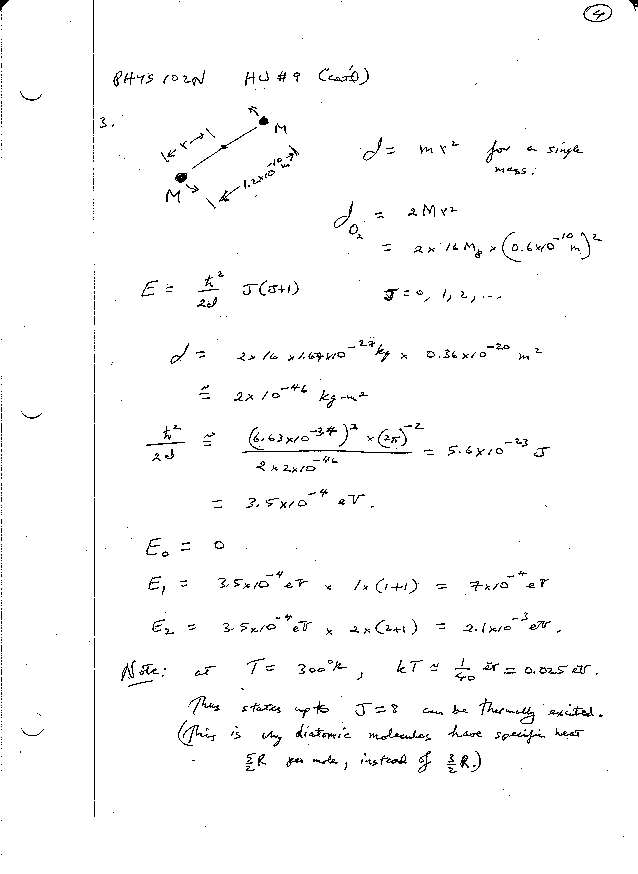 4
PHYS 102N HW #9 (cont'd)
3.
M
r
1.2x10⁻¹⁰ m
M
I = mr² for a single
mass.
I_O₂ = 2Mr²
= 2 x 16 Mp x (0.6x10⁻¹⁰ m)²
E = ħ²/2I J(J+1) J = 0, 1, 2, ...
I = 2x 16 x1.67x10⁻²⁷ kg x 0.36x10⁻²⁰ m²
≅ 2x10⁻⁴⁶ kg-m²
ħ²/2I ≅ (6.63x10⁻³⁴)² x (2π)⁻² / 2x2x10⁻⁴⁶ = 5.6x10⁻²³ J
= 3.5x10⁻⁴ eV.
E₀ = 0
E₁ = 3.5x10⁻⁴ eV x 1x(1+1) = 7x10⁻⁴ eV
E₂ = 3.5x10⁻⁴ eV x 2x(2+1) = 2.1x10⁻³ eV.
Note: at T = 300°K, kT ≃ 1/40 eV = 0.025 eV.
Thus states up to J=8 can be thermally excited.
(This is why diatomic molecules have specific heat
5/2 R per mole, instead of 3/2 R.)